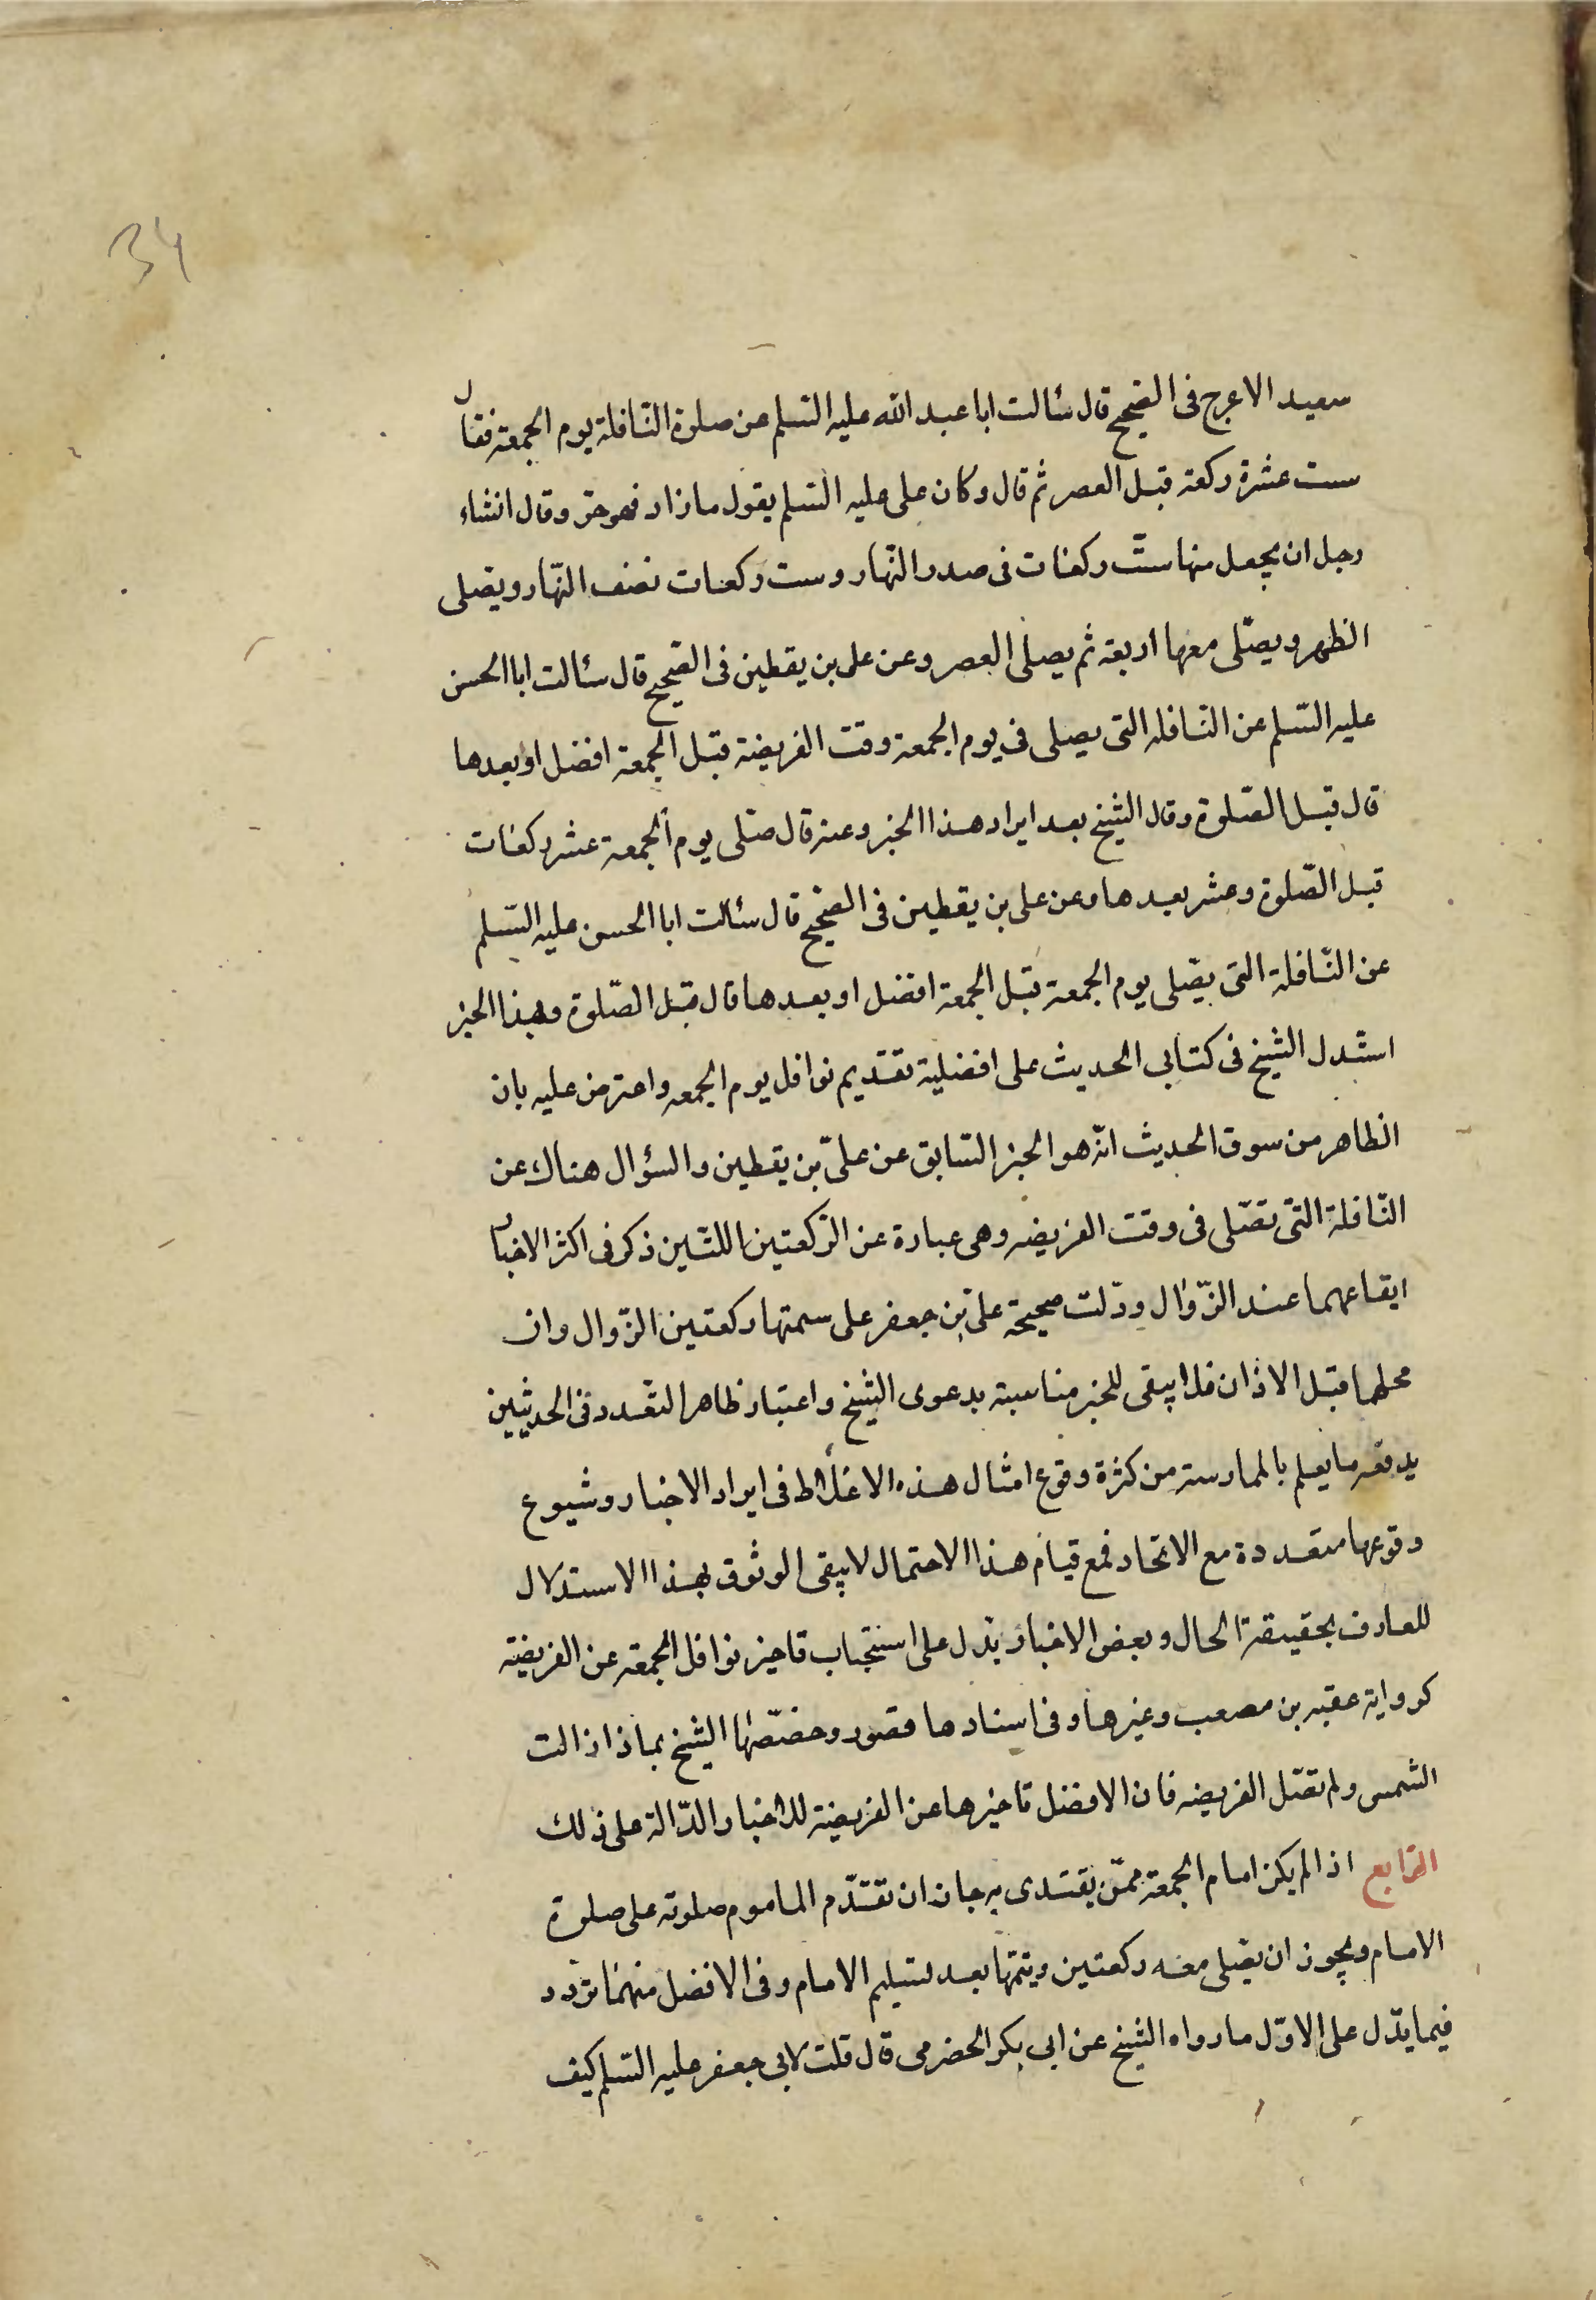 34
سعيد الاعرج فى الصحيح قال سئالت ابا عبد الله عليه السّلم عن صلوة النّافلة يوم الجمعة فقال
ست عشرة ركعة قبل العصر ثم قال وكان على عليه السّلم يقول ما زاد فهو حق وقال انشاء
رجل ان يجعل منها ستّ ركعات فى صدر النّهار وست ركعات نصف النّهار ويصلى
الظهر ويصلّى معها اربعة ثم يصلى العصر وعن على بن يقطين فى الصّحيح قال سئالت ابا الحسن
عليه السّلم عن النّافلة التى يصلى فى يوم الجمعة وقت الفريضة قبل الجمعة افضل او بعدها
قال قبل الصّلوة وقال الشيخ بعد ايراد هذا الخبر وعنه قال صلّى يوم الجمعة عشر ركعات
قبل الصّلوة وعشر بعدها وعن على بن يقطين فى الصّحيح قال سئالت ابا الحسن عليه السّلم
عن النّافلة التى يصّلى يوم الجمعة قبل الجمعة افضل او بعدها قال قبل الصّلوة وبهذا الخبر
استدل الشيخ فى كتابى الحديث على افضلية تقديم نوافل يوم الجمعه واعترض عليه بان
الظاهر من سوق الحديث انّه هو الخبر السّابق عن علىّ بن يقطين والسؤال هناك عن
النّافلة التى تصّلى فى وقت الفريضه وهى عبارة عن الرّكعتين اللتين ذكر فى اكثر الاخبار
ايقاعهما عند الزّوال ودّلت صحيحة علىّ بن جعفر على سمتها ركعتين الزّوال وان
محلهما قبل الاذان فلا يبقى للخبر مناسبة بدعوى الشيخ واعتبار ظاهر التعّدد فى الحديثين
يدفعه ما يعلم بالممارسة من كثرة وقوع امثال هذه الاغلاط فى ايراد الاخبار وشيوع
وقوعها متعددة مع الاتحاد فمع قيام هذا الاحتمال لا يبقى الوثوق بهذا الاستدلال
للعارف بحقيقة الحال وبعض الاخبار يدّل على استحباب تاخير نوافل الجمعة عن الفريضة
كرواية عقبه بن مصعب وغيرها وفى اسنادها قصور وخصّصها الشيخ بما اذا زالت
الشمس ولم تصّل الفريضه فان الافضل تاخيرها عن الفريضة للاخبار الدّالة على ذلك
الرّابع اذا لم يكن امام الجمعة ممّن يقتدى به جاز ان تقدّم الماموم صلوته على صلوة
الامام ويجوز ان يصّلى معه ركعتين ويتمّها بعد تسليم الامام وفى الافضل منهما تردد
فيما يدّل على الاوّل ما رواه الشيخ عن ابى بكر الحضرمى قال قلت لابى جعفر عليه السّلم كيف